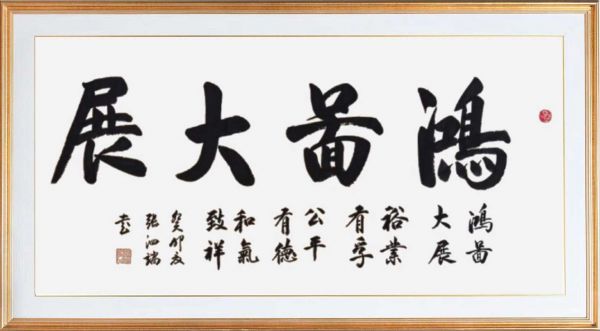 鴻圖大展
鴻圖
大展
裕業
有孚
公平
有德
和氣
致祥
癸卯夏
張
書